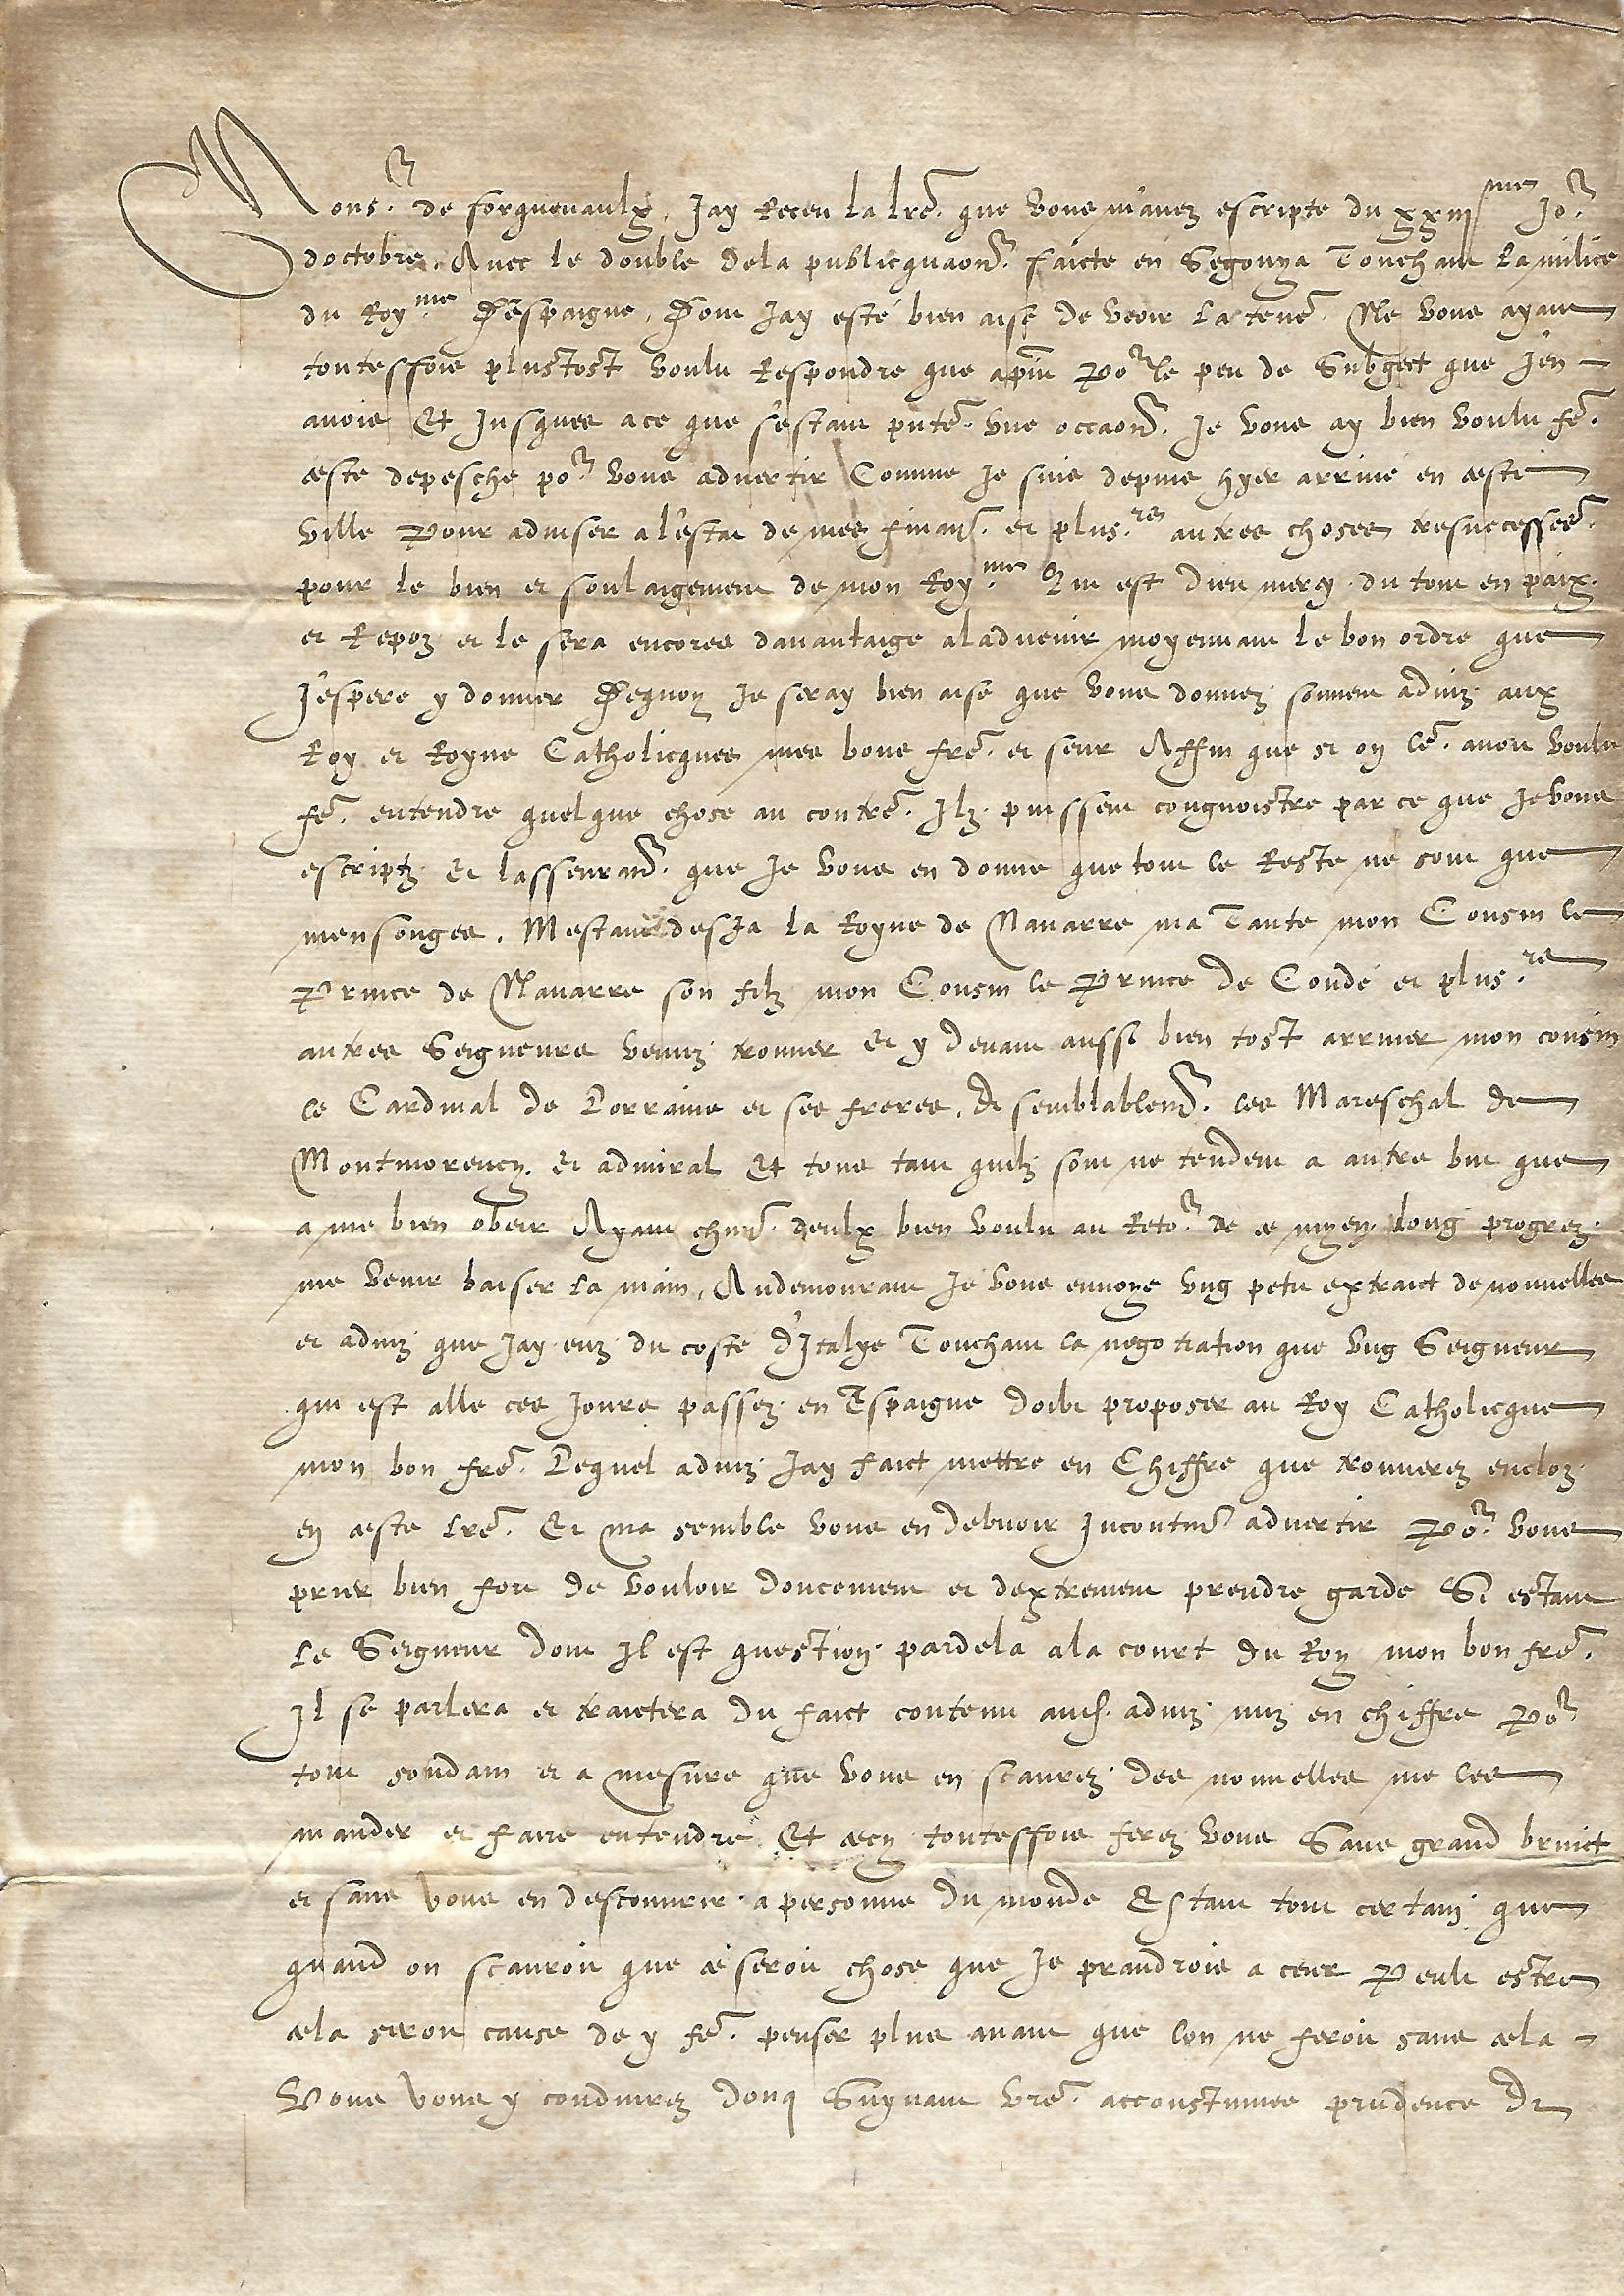 Monsr. de forquevaulx, Jay Receu la lre. que vous m'avez escripte du xxiiime Jor
doctobre, Avec le double dela publicquaon. faicte en Segovya Touchant la milice
du Royme. D'espaigne, Dont Jay esté bien aise de veoir la tene. Ne vous ayant
toutesfois plustost voulu Respondre que apnt por le peu de Subgect que J'en
avois Et Jusques a ce que s'estant pnte. une occaon. Je vous ay bien voulu fe.
ceste depesche por vous advertir Comme Je suis depuis hyer arrivé en ceste
ville Pour adviser a l'estat de mes finan. et plus.rs autres choses tresnecesse.
pour le bien et soulaigement de mon Royme. Qui est dieu mercy du tout en paix
et Repoz et le sera encores davantaige aladvenir moyennant le bon ordre que
J'espere y donner Dequoy Je seray bien aise que vous donnez souvent adviz aux
Roy et Royne Catholicques mes bons fre. et seur Affin que si on le. avoit voulu
fe. entendre quelque chose au contre. Ilz puissent congnoistre par ce que Je vous
escriptz Et lasseuran. que Je vous en donne que tout le Reste ne sont que
mensonges. M'estant desJa la Royne de Navarre ma Tante mon Cousin le
Prince de Navarre son filz mon Cousin le Prince de Condé et plus.rs
autres Seigneurs venuz trouver Et y devant aussi bien tost arriver mon cousin
le Cardinal de Lorraine et ses freres, Et semblablemt. les Mareschal de
Montmorency Et admiral Et tous tant quilz sont ne tendent a autre but que
a me bien obeir Ayant chun. deulx bien voulu au Retor. de ce myen long progrez
me venir baiser la main, Audemourant Je vous envoye ung petit extraict de nouvelles
et adviz que Jay euz du costé d'Italye Touchant la negotiation que ung Seigneur
qui est allé ces Jours passez en Espaigne doibt proposer au Roy Catholicque
mon bon fre. Lequel adviz Jay faict mettre en Chiffre que trouverez encloz
en ceste lre. Et ma semblé vous en debvoir Incontint advertir Por. vous
prier bien fort de vouloir doucement et dextrement prendre garde Si estant
le Seigneur dont Il est question pardela ala court du Roy mon bon fre.
Il se parlera et traictera du faict contenu aud. adviz mis en chiffre Por
tout soudain et a mesure que vous en scaurez des nouvelles me les
mander et faire entendre Et cecy toutesfois ferez vous Sans grand bruict
et sans vous en descouvrir a personne du monde Estant tout certain que
quand on scauroit que ce seroit chose que Je prandrois a ceur Peult estre
cela seroit cause de y fe. penser plus avant que lon ne feroit sans cela
Vous vous y conduirez donq Suyvant vre. accoustumee prudence Et